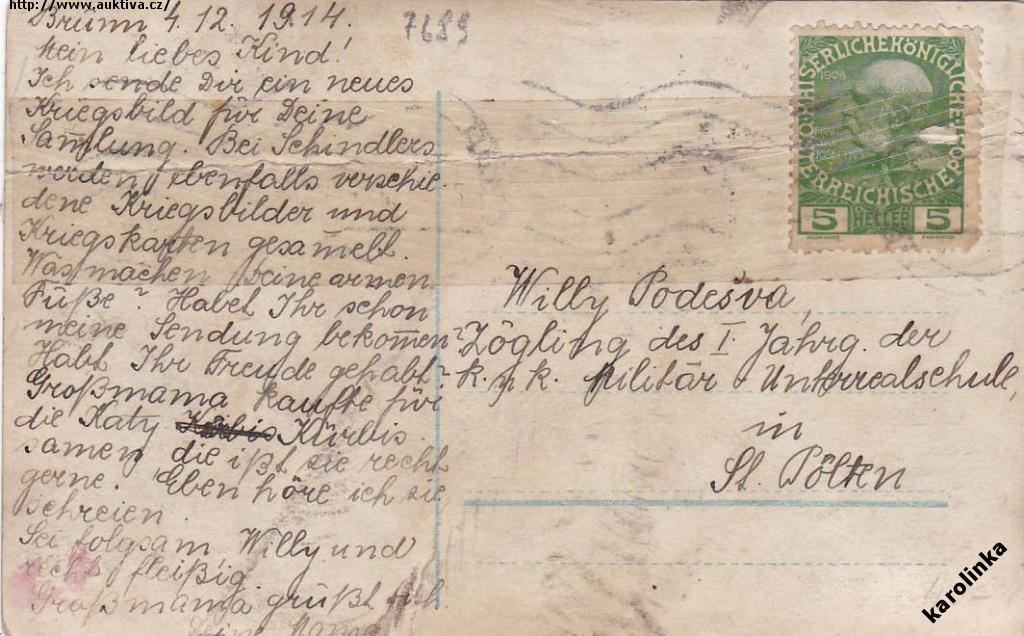 http://www.auktiva.cz/
Brünn 4. 12. 1914.
7689
Mein liebes Kind!
Ich sende Dir ein neues
Kriegsbild für Deine
Sam̅lung. Bei Schindlers
werden ebenfalls verschie-
dene Kriegsbilder und
Kriegskarten gesam̅elt.
Was machen Deine armen
Füße? Habet Ihr schon
meine Sendung bekom̅en?
Habt Ihr Freude gehabt?
Großmama kaufte für
die Katy Kürbis Kürbis
samen, die ißt sie recht
gerne. Eben höre ich sie
schreien.
Sei folgsam Willy und
recht fleißig.
Großmama grüßt Dich.
Deine Mama
KAISERLICHE KÖNIGLICHE
ÖSTERREICHISCHE POST
1908
5 HELLER 5
Willy Podešva,
Zögling des I. Jahrg. der
k. u. k. Militär Unterrealschule,
in
St. Pölten
karolinka